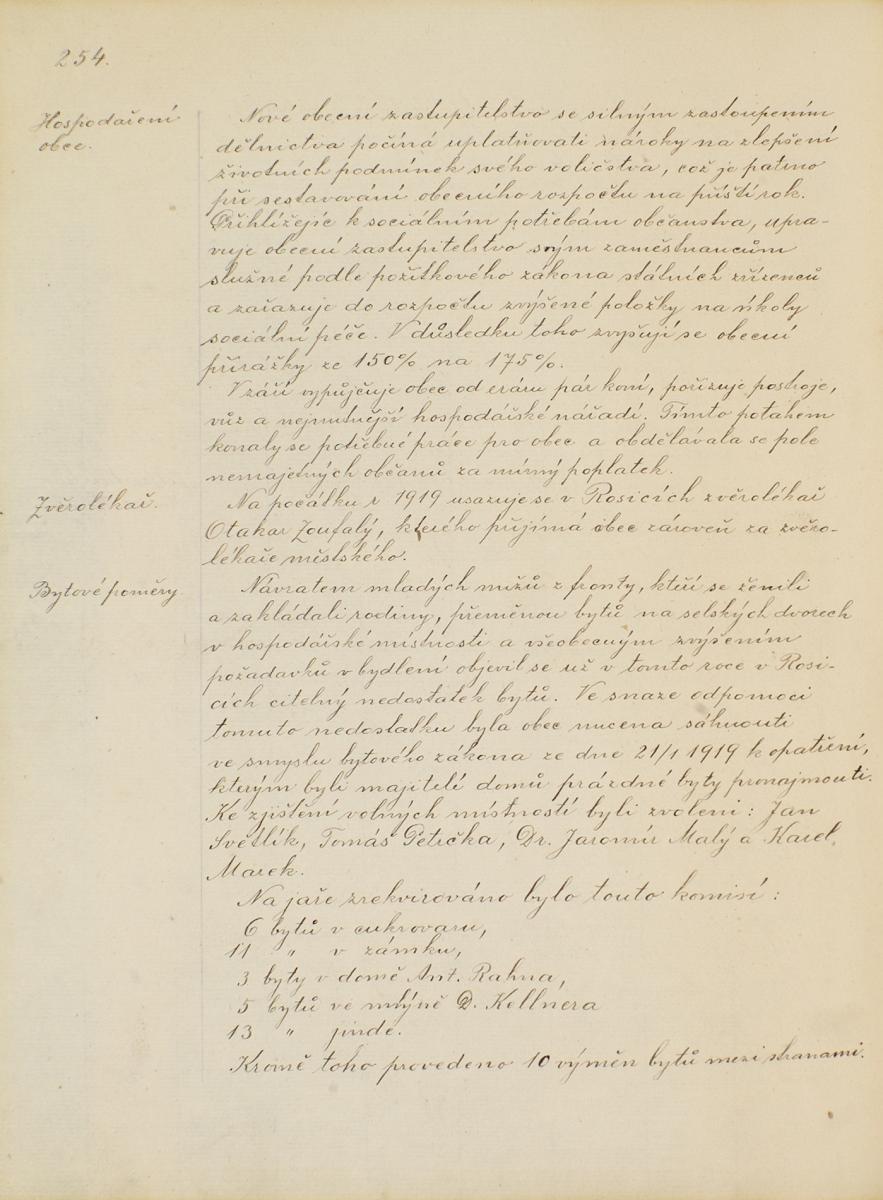 254.
Hospodaření
obce.
Nové obecní zastupitelstvo se silným zastoupením
dělnictva počíná uplatňovati nároky na zlepšení
životních podmínek svého voličstva, což je patrno
při sestavování obecního rozpočtu na příští rok.
Přihlížejíc k sociálním potřebám občanstva, upra-
vuje obecní zastupitelstvo svým zaměstnancům
služné podle požitkového zákona státních zřízenců
a zařazuje do rozpočtu zvýšené položky na úkoly
sociální péče. V důsledku toho zvyšují se obecní
přirážky ze 150% na 175%.
V září vypůjčuje obec od eráru pár koní, pořizuje postroje,
vůz a nejnutnější hospodářské nářadí. Tímto potahem
konaly se potřebné práce pro obec a obdělávala se pole
nemajetných občanů za mírný poplatek.
Zvěrolékař.
Na počátku r 1919 usazuje se v Rosicích zvěrolékař
Otakar Zoufalý, kterého přijímá obec zároveň za zvěro-
lékaře městského.
Bytové poměry
Návratem mladých mužů z fronty, kteří se ženili
a zakládali rodiny, přeměnou bytů na selských dvorech
v hospodářské místnosti a všeobecným zvýšením
požadavků v bydlení objevil se už v tomto roce v Rosi-
cích citelný nedostatek bytů. Ve snaze odpomoci
tomuto nedostatku byla obec nucena sáhnouti
ve smyslu bytového zákona ze dne 21/1 1919 k opatření,
kterým byli majitelí domů prázdné byty pronajmouti.
Ke zjištění volných místností byli zvoleni: Jan
Světlík, Tomáš Petrčka, Dr. Jaromír Malý a Karel
Marek.
Na jaře zrekvirováno bylo touto komisí:
6 bytů v cukrovaru,
11 " v zámku,
3 byty v domě Ant. Rahna,
5 bytů ve mlýně D. Kellnera
13 " jinde.
Kromě toho provedeno 10 výměn bytů mezi stranami.